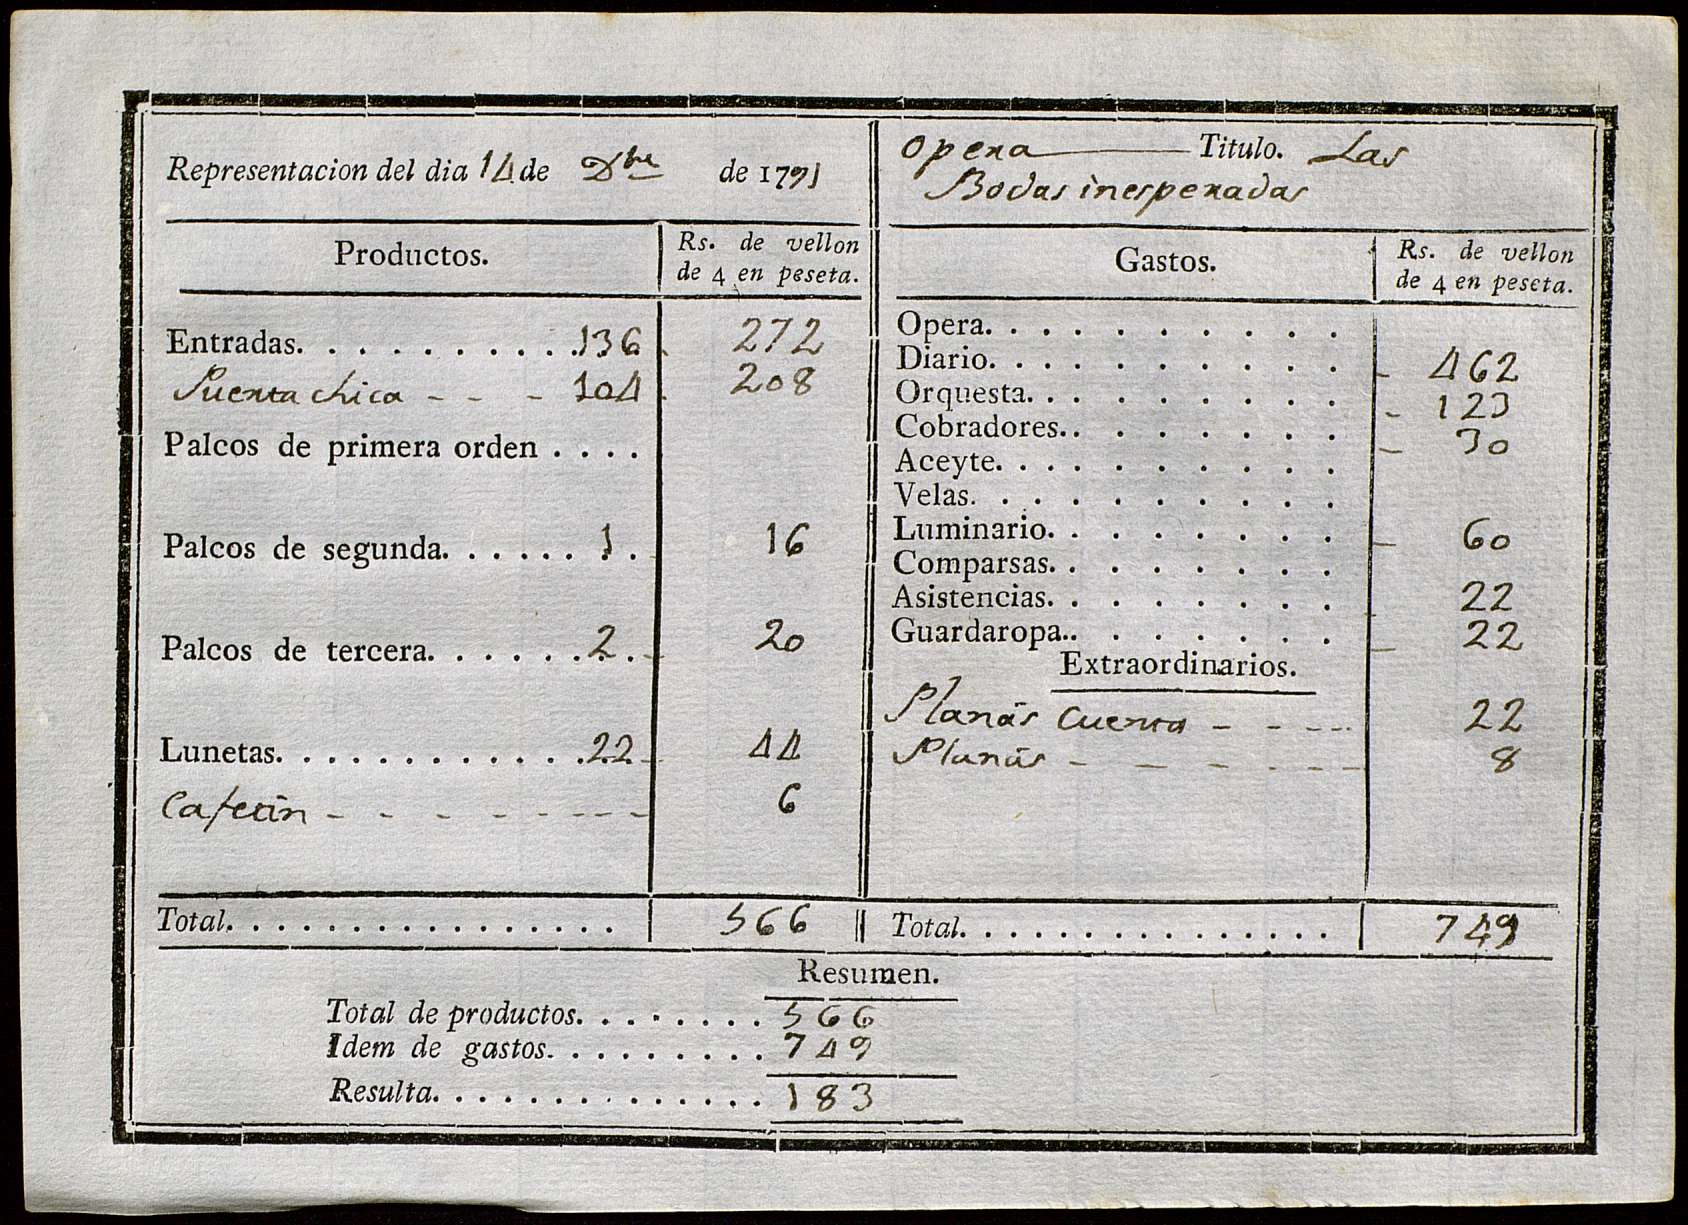 Representacion del dia 14 de Dbre de 1791
Opera Titulo. Las
Bodas inesperadas
Productos.
Rs. de vellon
de 4 en peseta.
Entradas. 136 272
Puerta chica 104 208
Palcos de primera orden
Palcos de segunda. 1 16
Palcos de tercera. 2 20
Lunetas. 22 44
Cafetin 6
Total. 566
Gastos.
Rs. de vellon
de 4 en peseta.
Opera.
Diario. 462
Orquesta. 123
Cobradores. 30
Aceyte.
Velas.
Luminario. 60
Comparsas.
Asistencias. 22
Guardaropa. 22
Extraordinarios.
Planás Cuenta 22
Planás 8
Total. 749
Resumen.
Total de productos. 566
Idem de gastos. 749
Resulta. 183